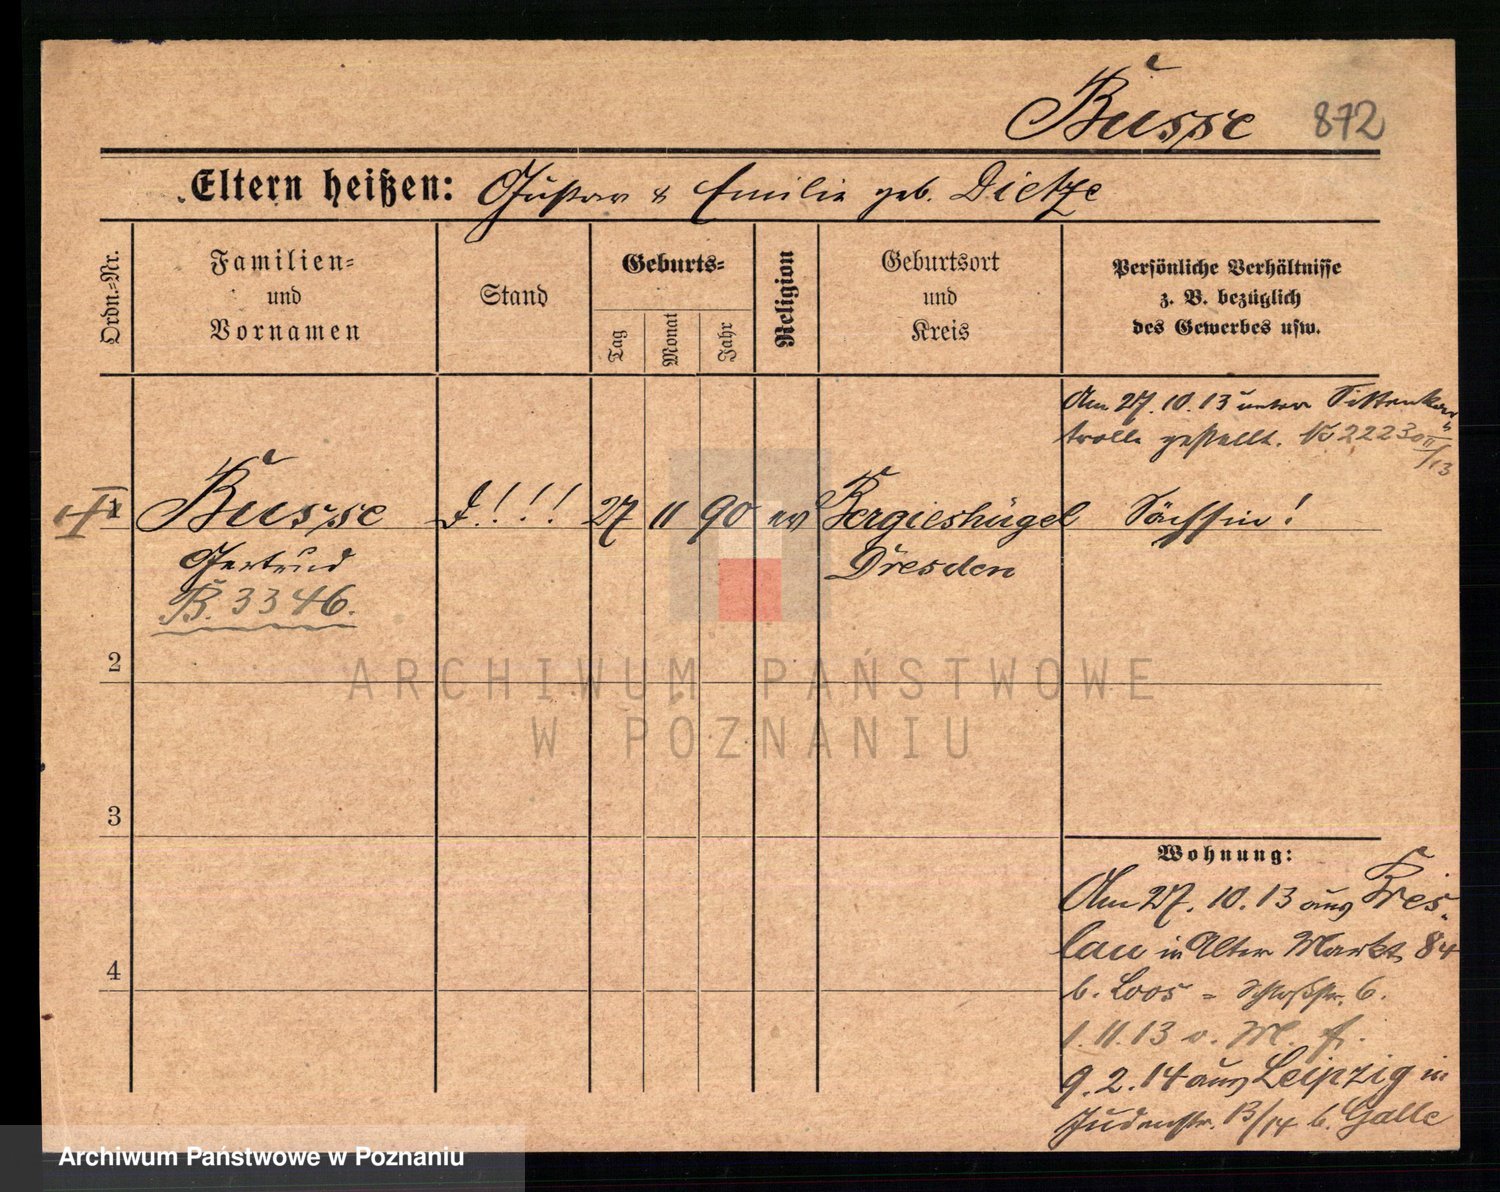 Busse 872
Eltern heißen: Gustav & Emilie geb. Dietze
Ordn.-Nr.
Familien-
und
Vornamen
Stand
Geburts-
Tag
Monat
Jahr
Religion
Geburtsort
und
Kreis
Persönliche Verhältnisse
z. B. bezüglich
des Gewerbes usw.
Am 27.10.13 unter Sittenkon-
trolle gestellt.
1 Busse D.!!! 27 11 90 ev Bergieshügel Sächsin!
Gertrud Dresden
B. 3346.
2
ARCHIWUM PAŃSTWOWE
W POZNANIU
3
Wohnung:
Am 27.10.13 aus Bres-
lau in Alter Markt 84
b. Loos = Schloßstr. 6.
1.11.13 v. M.
4
9.2.14 aus Leipzig in
Judenstr. 13/14 b. Galle
Archiwum Państwowe w Poznaniu